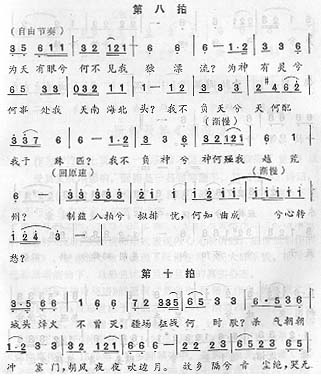 第八拍
(自由节奏)
3 5 6 1 1 | 3 2 1 2 1 | 6 — | 6 — | 6 1·2 | 3 3 6 |
为天有眼兮 何不见我 独 漂 流?为神 有灵兮
6 5 3 3 | 0 3 2 1 2 | 3 — | 6 6 1·2 | 3 3 3 | 2 4 6 2 |
何事 处我 天南海北 头?我不 负天兮 天何配
(渐慢)
3 3 7 6 | 6 — | 1·2 | 3 3 6 | 3 2 1 2 1 | 6 6 |
我于 殊匹?我不 负神兮 神何殛我 越荒
(回原速) (渐慢)
6 — | 0 3 3 3 | 3 3 3 3 | 2 1 | 1 1 1 1 1 | 1 1 1 1 1 |
州? 制兹八拍兮 拟排 忧,何知曲成 兮心转
1 2 4 3 — |
愁?
第十拍
3·5 6 6 | 1 6 6 | 7 2 3 3 5 | 6 5 3 3 | 6·5 3 6 |
城头烽火 不曾灭,疆场征战何 时歇?杀气朝朝
1·2 3 3 | 3 2 1 2 3 | 2 1 1 | 2 3 5 3 2 | 1 3 5 |
冲 塞门,胡风夜夜吹边月。故乡隔兮音尘绝,哭无